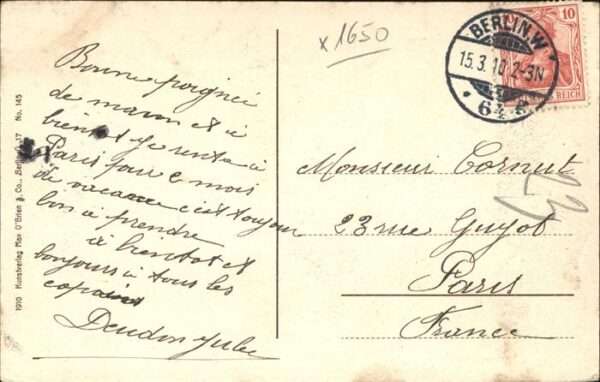 x1650
BERLIN.W
15.3.10.2-3N
* 64 g
10
REICH
Bonne poignée
de mavon et à
bientot je rentre à
Paris pour 2 mois
de vacance c'est toujour
bon à prendre
à bientot et
bonjours à tous les
copains
Deudon Jules
Monsieur Cornut
23 rue Guyot
Paris
France
23
1910 Kunstverlag Max O'Brien & Co., Berlin 17 No. 145